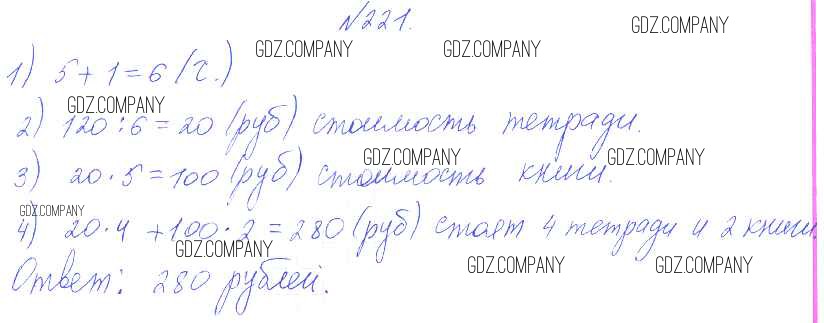 №221.
GDZ.COMPANY
GDZ.COMPANY GDZ.COMPANY
1) 5+1=6 (ч.)
GDZ.COMPANY
2) 120:6=20 (руб) стоимость тетради.
GDZ.COMPANY GDZ.COMPANY
3) 20·5=100 (руб) стоимость книги.
GDZ.COMPANY
4) 20·4+100·2=280 (руб) стоят 4 тетради и 2 книги.
GDZ.COMPANY
GDZ.COMPANY GDZ.COMPANY
Ответ: 280 рублей.